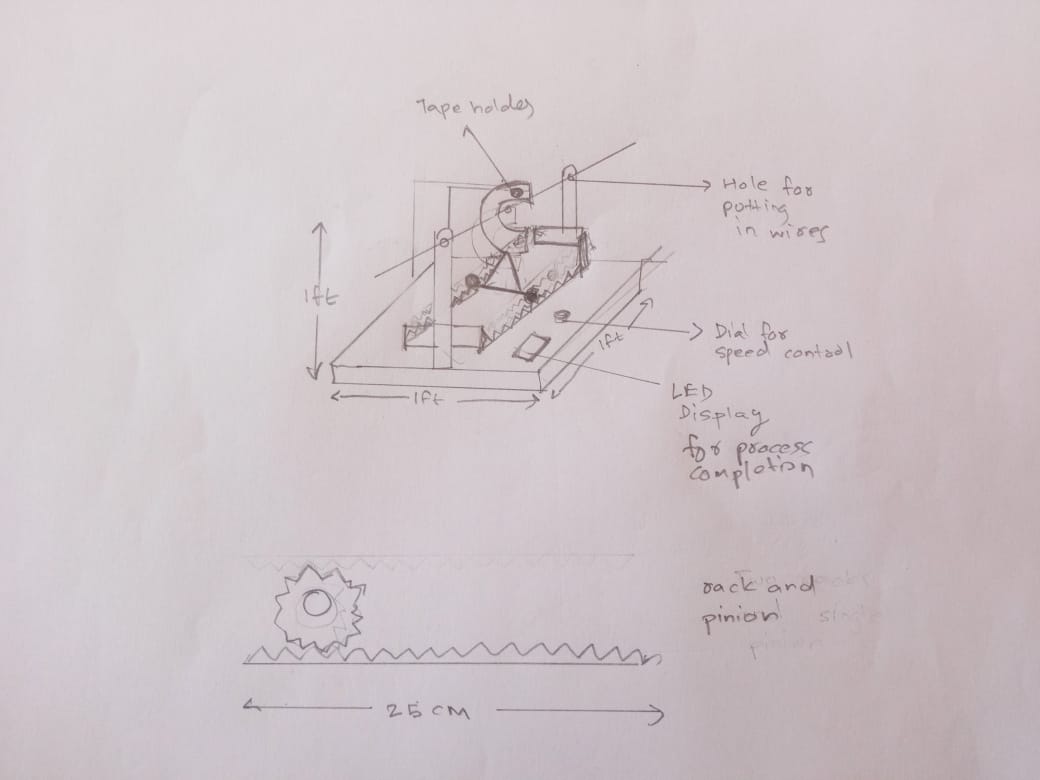 Tape holder
Hole for
putting
in wires
1ft
Dial for
speed control
1ft
1ft
LED
Display
for process
completion
rack and
pinion
25 CM